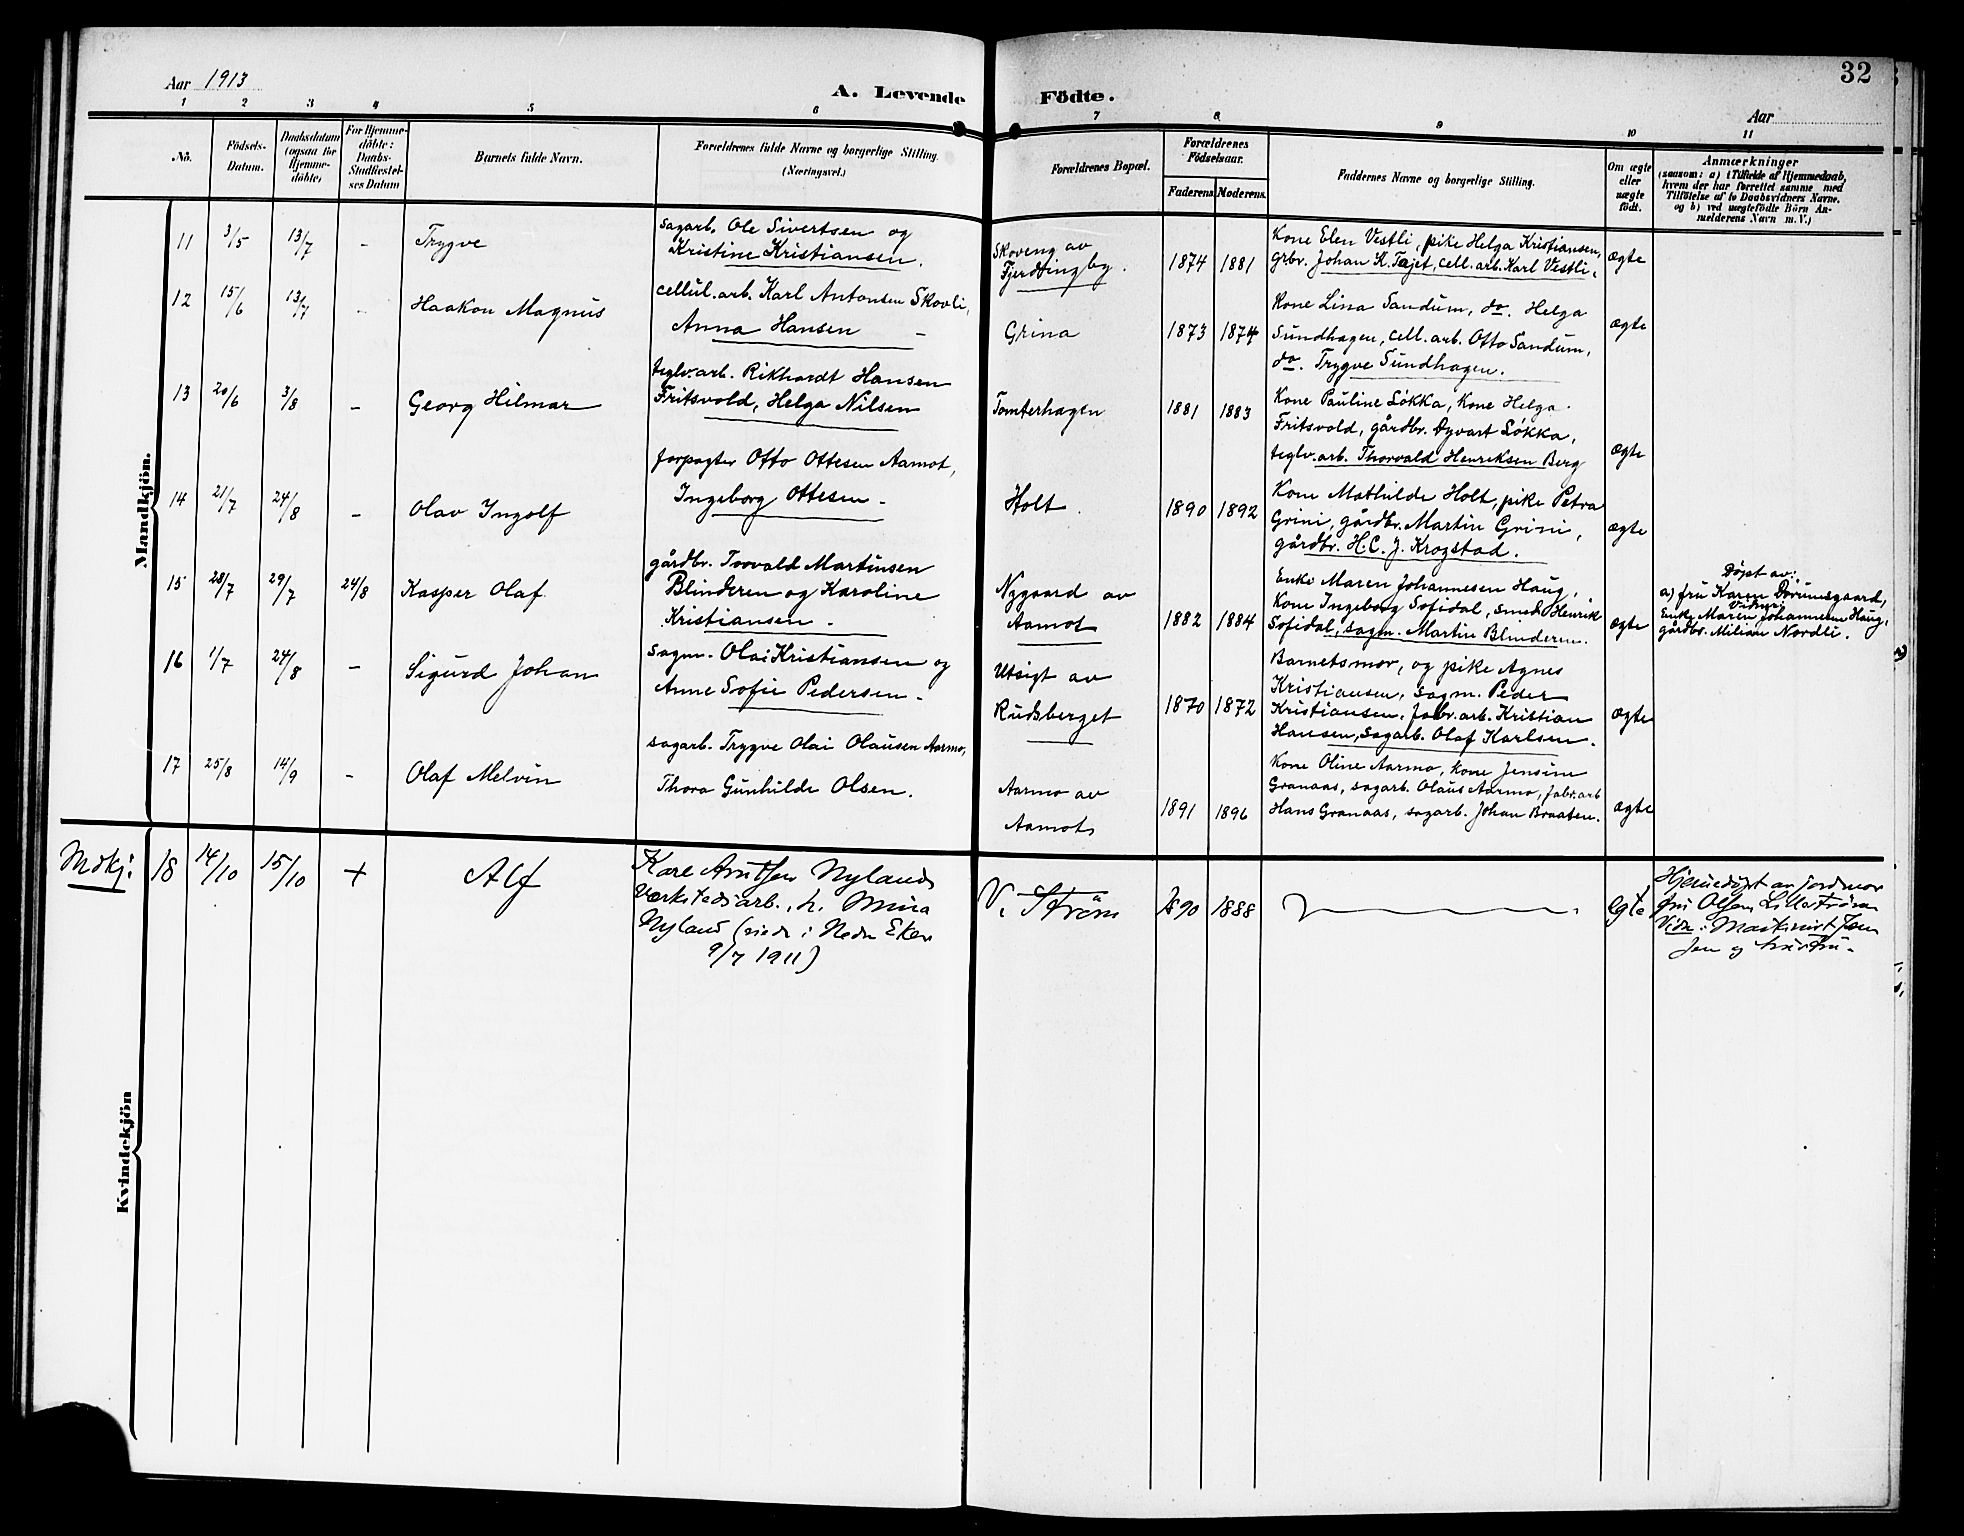 32
Aar 1913
A. Levende Födte.
Aar
1 2 3 4 5 6 7 8 9 10 11
No.
Födsels-
Datum.
Daabsdatum
(ogsaa for
Hjemme-
döbte)
For Hjemme-
döbte:
Daabs-
Stadfæstel-
ses Datum
Barnets fulde Navn.
Forældrenes fulde Navne og borgerlige Stilling.
(Næringsvei.)
Forældrenes Bopæl.
Forældrenes
Födselsaar.
Faderens. Moderens.
Faddernes Navne og borgerlige Stilling.
Om ægte
eller
uægte
födt.
Anmærkninger
(saasom: a) i Tilfælde af Hjemmedaab,
hvem der har forrettet samme med
Tilföielse af to Daabsvidners Navne.
og b) ved uægtefödte Börn An-
mælderens Navn m. V.)
Mandkjön.
11 3/5 13/7 - Trygve
Sagarb. Ole Sivertsen og
Kristine Kristiansen.
Skoveng av
Fjerdingby.
1874 1881
Kone Elen Vestli, pike Helga Kristiansen,
grbr. Johan K. Tajet, cell. arb. Karl Vestli.
ægte
12 15/6 13/7 - Haakon Magnus
cellul. arb. Karl Antonsen Skovli,
Anna Hansen -
Grina
1873 1874
Kone Lina Sandum, do. Helga
Sundhagen, cell. arb. Otto Sandum,
do. Trygve Sundhagen.
ægte
13 20/6 3/8 - Georg Hilmar
teglv. arb. Rikhardt Hansen
Fritsvold, Helga Nilsen
Tomterhagen
1881 1883
Kone Pauline Løkka, Kone Helga
Fritsvold, gårdbr. Dyvart Løkka,
teglv. arb. Thorvald Henriksen Berg
ægte
14 21/7 24/8 - Olav Ingolf
forpagter Otto Ottesen Aamot,
Ingeborg Ottesen -
Holt.
1890 1892
Kone Mathilde Holt, pike Petra
Grini, gårdbr. Martin Grini,
gårdbr. H. C. J. Krogstad.
ægte
15 28/7 29/7 24/8 Kasper Olaf
gårdbr. Torvald Martinsen
Blinderen og Karoline
Kristiansen -
Nygaard av
Aamot
1882 1884
Enke Maren Johannesen Haug,
Kone Ingeborg Sofidal, smed Henrik
Sofidal, sagm. Martin Blinderen.
ægte
Døpt av:
a) fru Karen Dørumsgaard,
Vidner
Enke Maren Johannesen Haug,
gårdbr. Milian Nordli.
16 1/7 24/8 - Sigurd Johan
Sagm. Olai Kristiansen og
Anne Sofie Pedersen -
Utsigt av
Rudsberget
1870 1872
Barnetsmor, og pike Agnes
Kristiansen, sagm. Peder
Kristiansen, fabr. arb. Kristian
Hansen, Sagarb. Olaf Karlsen.
ægte
17 25/8 14/9 - Olaf Melvin
sagarb. Trygve Olai Olausen Aarmo,
Thora Gunhilde Olsen.
Aarmo av
Aamot
1891 1896
Kone Oline Aarmo, kone Jensine
Granaas, sagarb. Olaus Aarmo, fabr. arb
Hans Granaas, sagarb. Johan Braaten.
ægte
Mdkj: 18 14/10 15/10 + Alf
Karl Nyland
Værkstedsarb., h. Mina
Nyland (viede i Nedre Eker
9/7 1911)
V. Strøm
1890 1888
egte
Hjemmedøpt av jordmor
fru Olsen, Lillestrøm
Vidn: Maskinist Jen
sen og hustru -
Kvindekjön